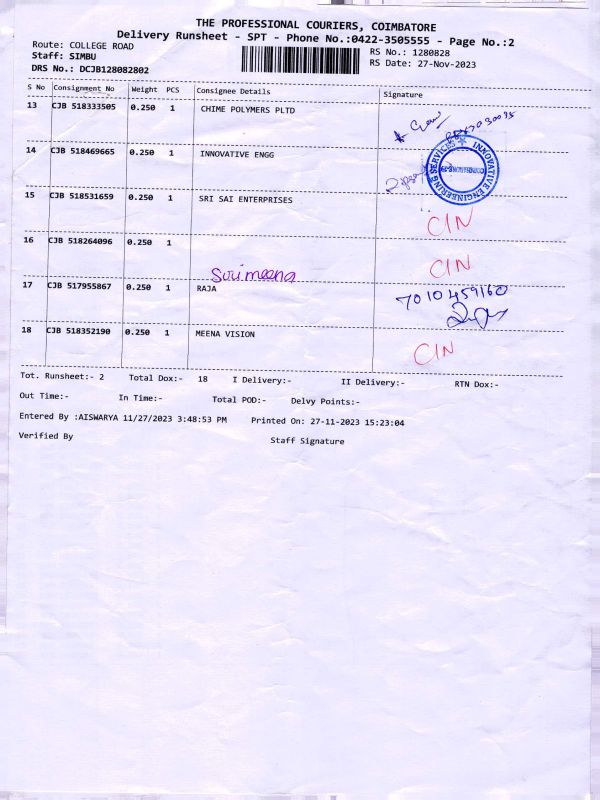 THE PROFESSIONAL COURIERS, COIMBATORE
Delivery Runsheet - SPT - Phone No.:0422-3505555 - Page No.:2
Route: COLLEGE ROAD
RS No.: 1280828
Staff: SIMBU
RS Date: 27-Nov-2023
DRS No.: DCJB128082802
S No Consignment No Weight PCS Consignee Details Signature
13 CJB 518333505 0.250 1 CHIME POLYMERS PLTD
14 CJB 518469665 0.250 1 INNOVATIVE ENGG
INNOVATIVE ENGINEERING SERVICES
15 CJB 518531659 0.250 1 SRI SAI ENTERPRISES
CIN
16 CJB 518264096 0.250 1
CIN
Surimeena
17 CJB 517955867 0.250 1 RAJA 7010459160
18 CJB 518352190 0.250 1 MEENA VISION
CIN
Tot. Runsheet:- 2 Total Dox:- 18 I Delivery:- II Delivery:- RTN Dox:-
Out Time:- In Time:- Total POD:- Delvy Points:-
Entered By :AISWARYA 11/27/2023 3:48:53 PM Printed On: 27-11-2023 15:23:04
Verified By Staff Signature